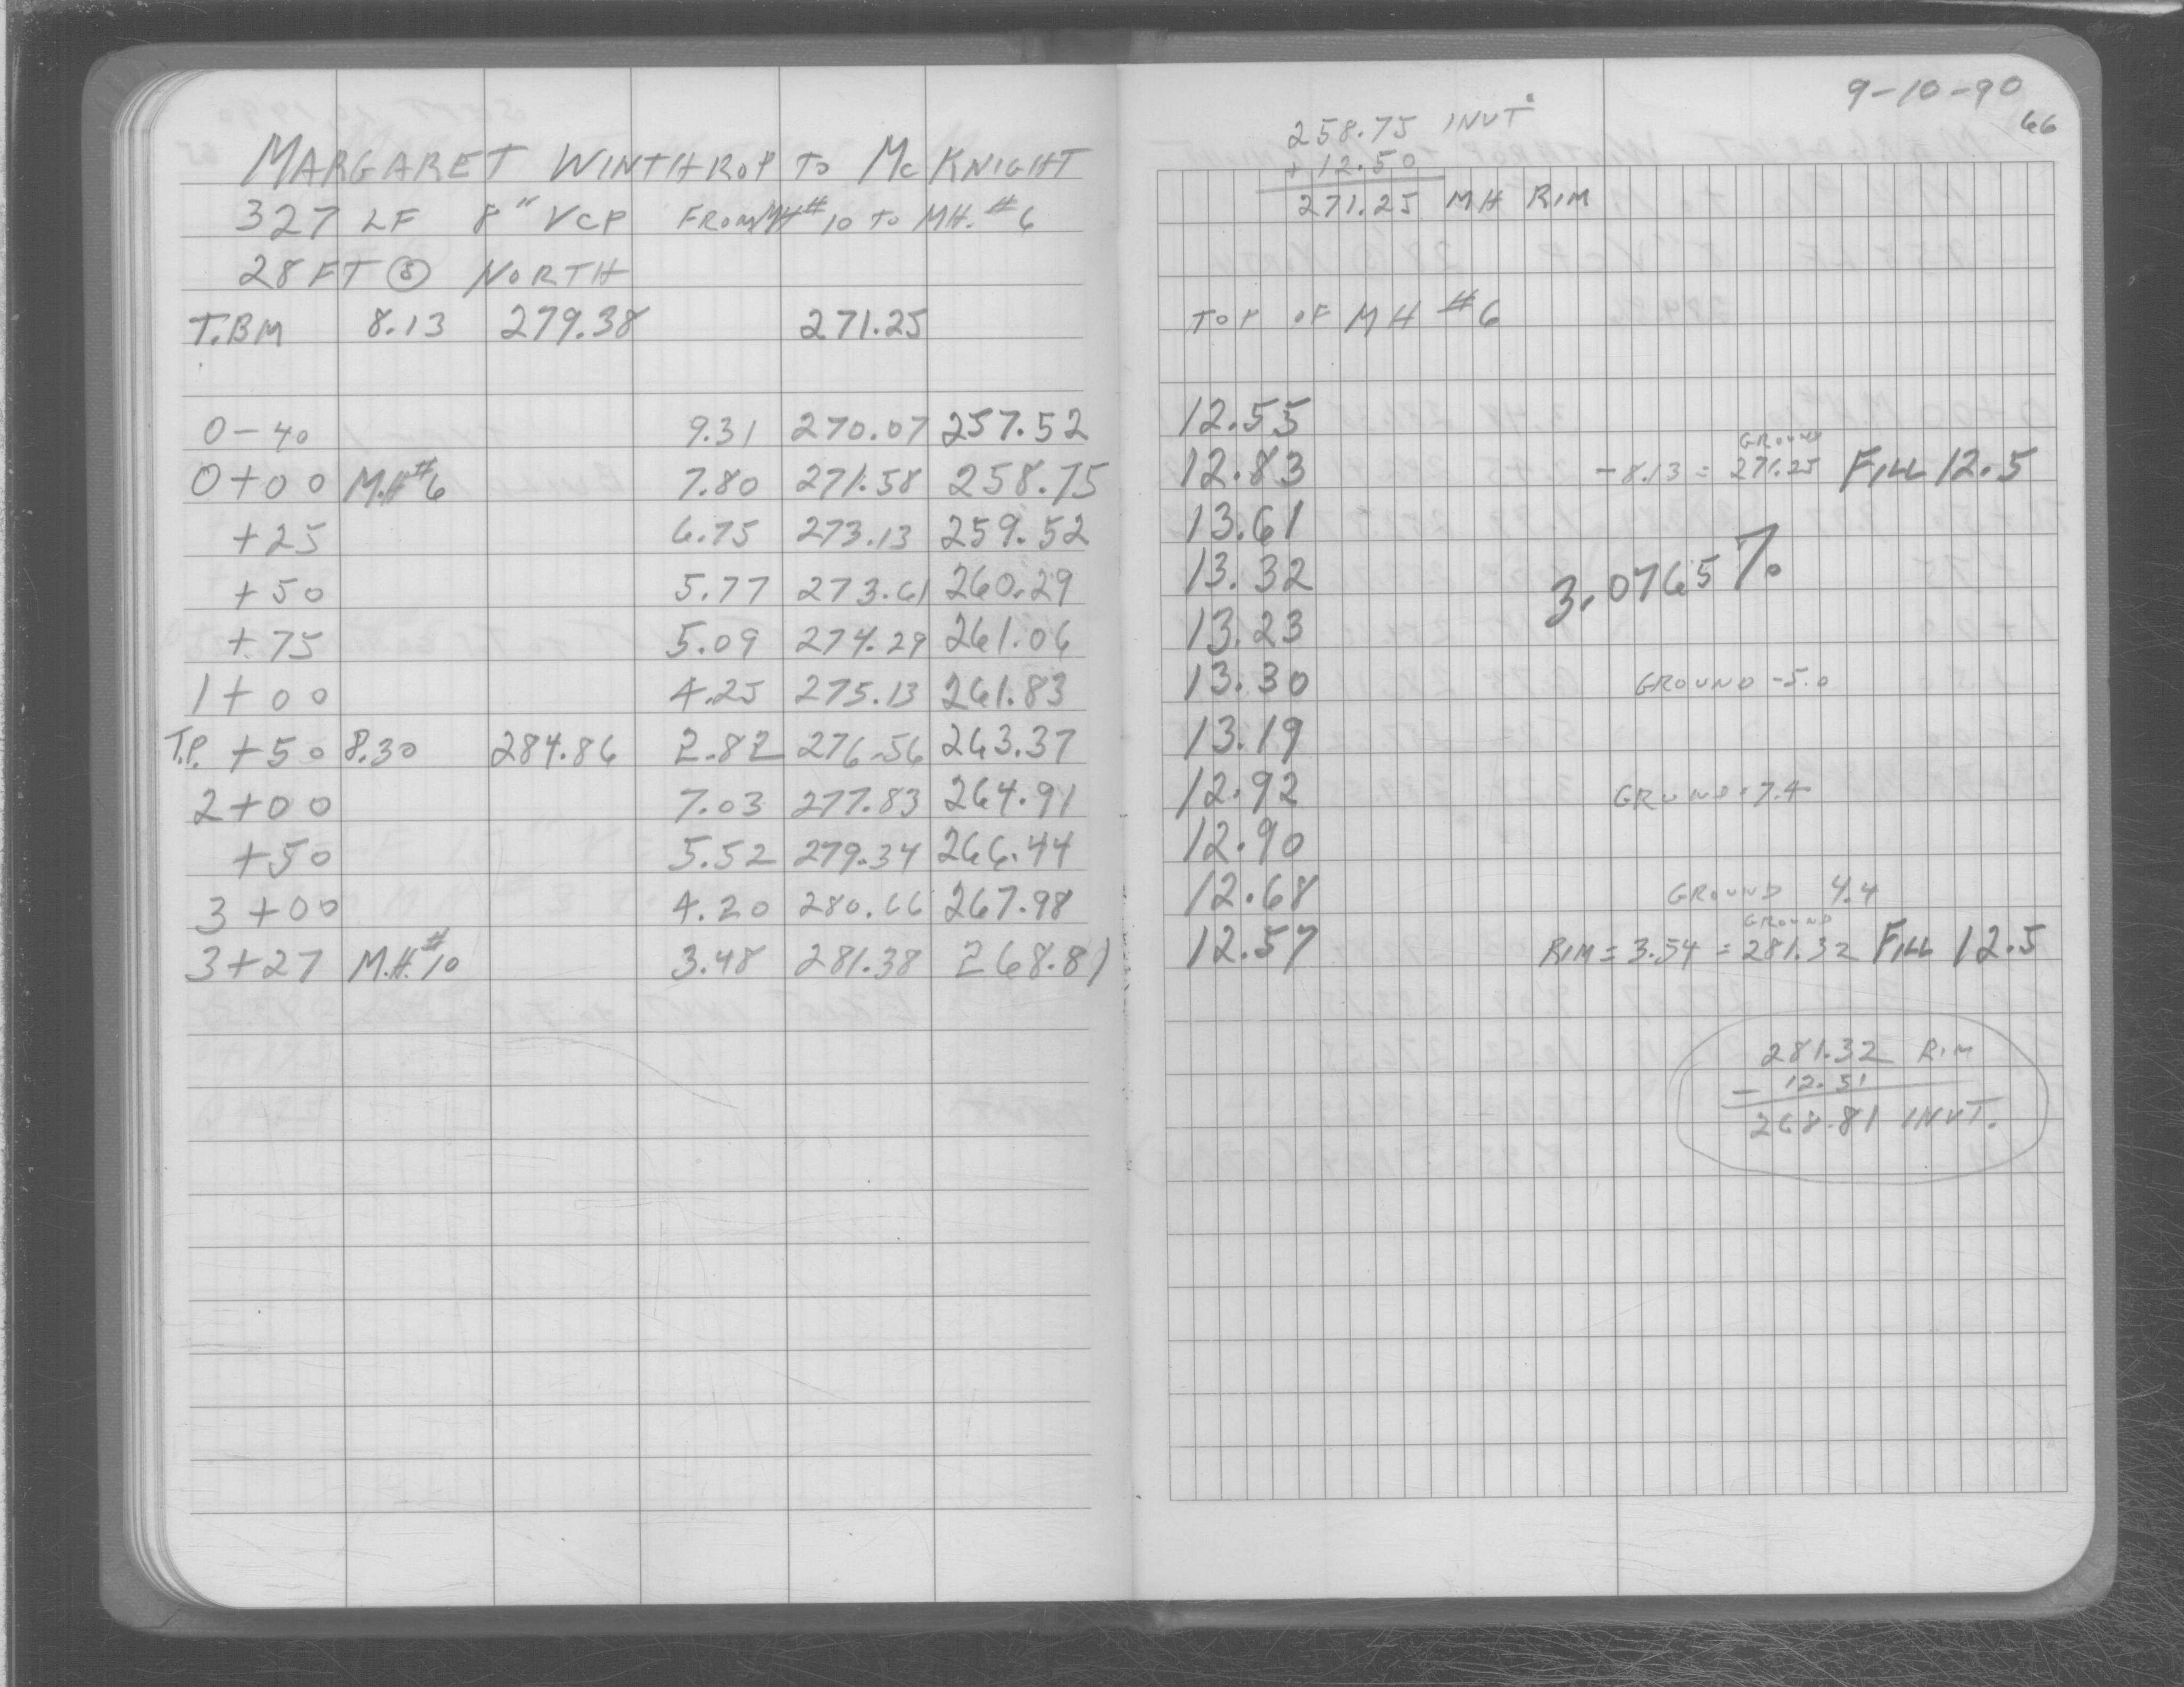 MARGARET WINTHROP TO McKNIGHT
327 LF 8" VCP FROM MH #10 TO MH. #6
28 FT Ⓢ NORTH
T.BM 8.13 279.38 271.25
0-40 9.31 270.07 257.52
0+00 M.H.#6 7.80 271.58 258.75
+25 6.75 273.13 259.52
+50 5.77 273.61 260.29
+75 5.09 274.29 261.06
1+00 4.25 275.13 261.83
T.P. +50 8.30 284.86 2.82 276.56 263.37
2+00 7.03 277.83 264.91
+50 5.52 279.34 266.44
3+00 4.20 280.66 267.98
3+27 M.H.#10 3.48 281.38 268.81
9-10-90
66
258.75 INVT.
+ 12.50
271.25 MH RIM
TOP OF MH #6
12.55
GROUND
12.83 -8.13 = 271.25 FILL 12.5
13.61
13.32 3.0765%
13.23
13.30 GROUND -5.0
13.19
12.92 GROUND 7.4
12.90
12.68 GROUND 4.4
GROUND
12.57 RIM = 3.54 = 281.32 FILL 12.5
281.32 RIM
- 12.51
268.81 INVT.